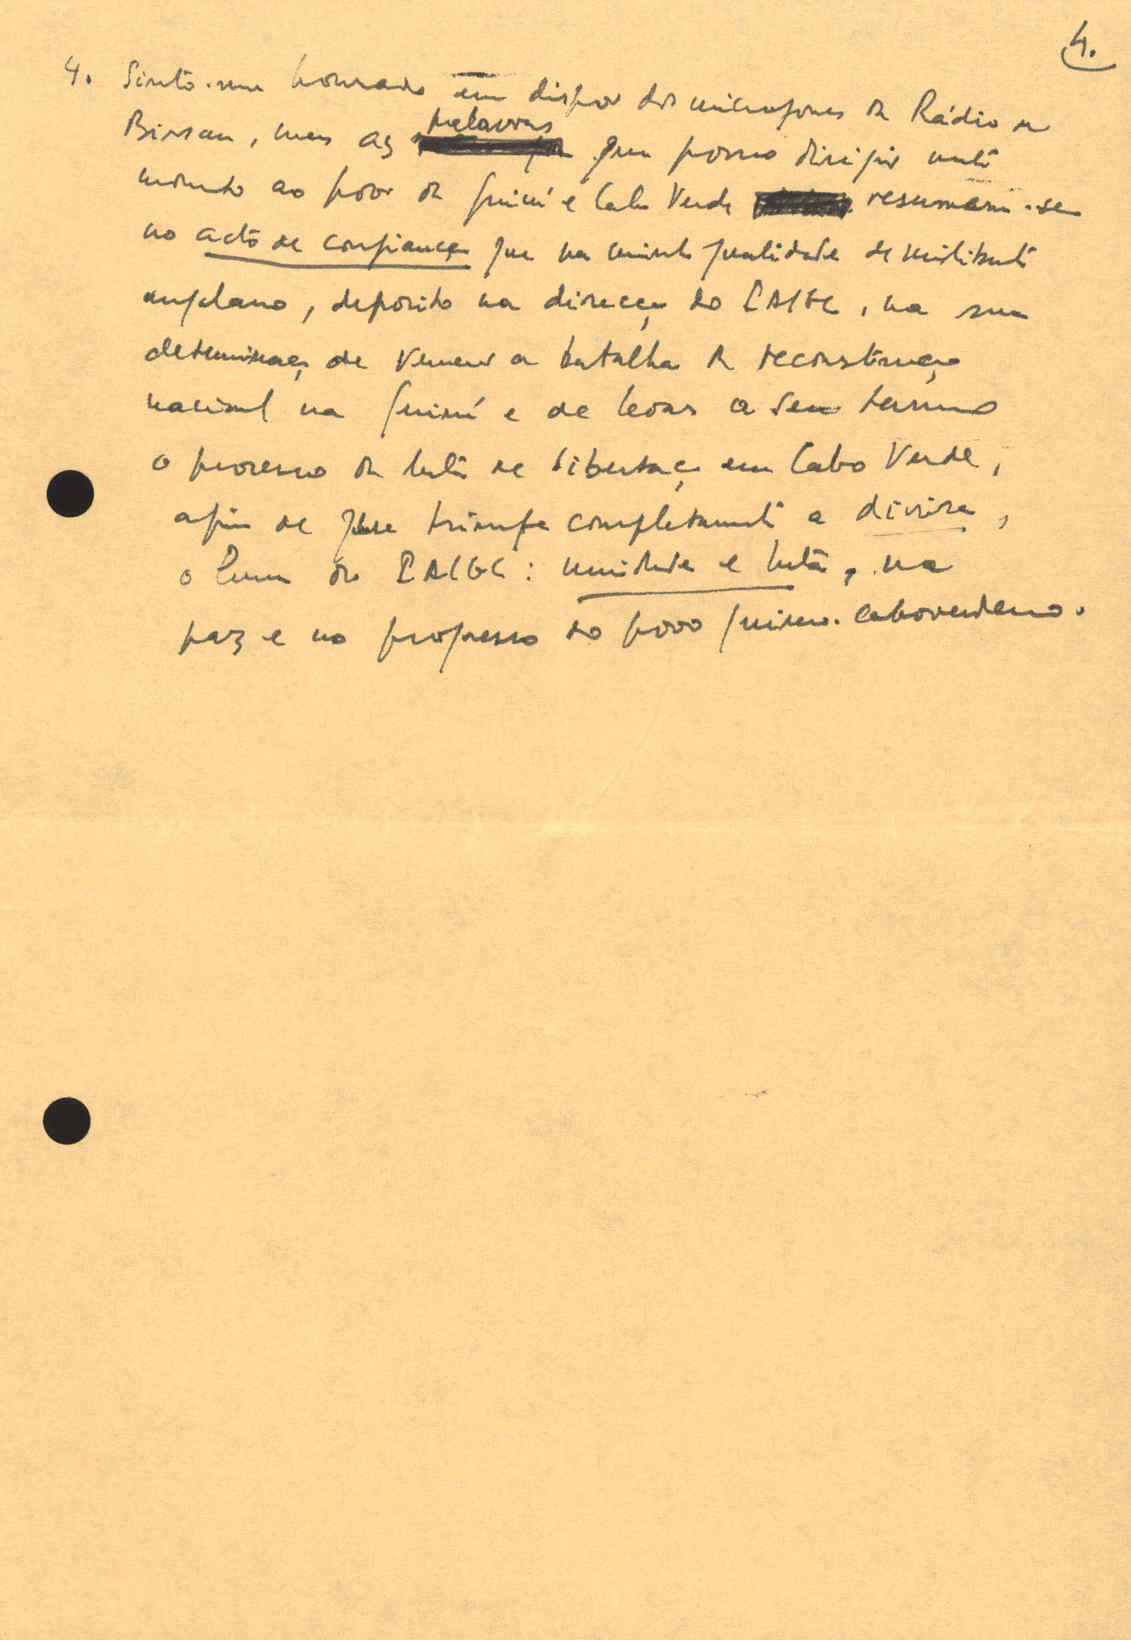 4.
4. Sinto-me honrado em dispor dos microfones da Rádio de
Bissau, mas as palavras que posso dirigir neste
momento ao povo da Guiné e Cabo Verde resumem-se
no acto de confiança que na minha qualidade de militante
angolano, deposito na direcção do PAIGC, na sua
determinação de vencer a batalha da reconstrução
nacional na Guiné e de levar a seu termo
o processo da luta de libertação em Cabo Verde,
afim de que triunfe completamente a divisa,
o lema do PAIGC: unidade e luta, na
paz e no progresso do povo guineo-caboverdeano.